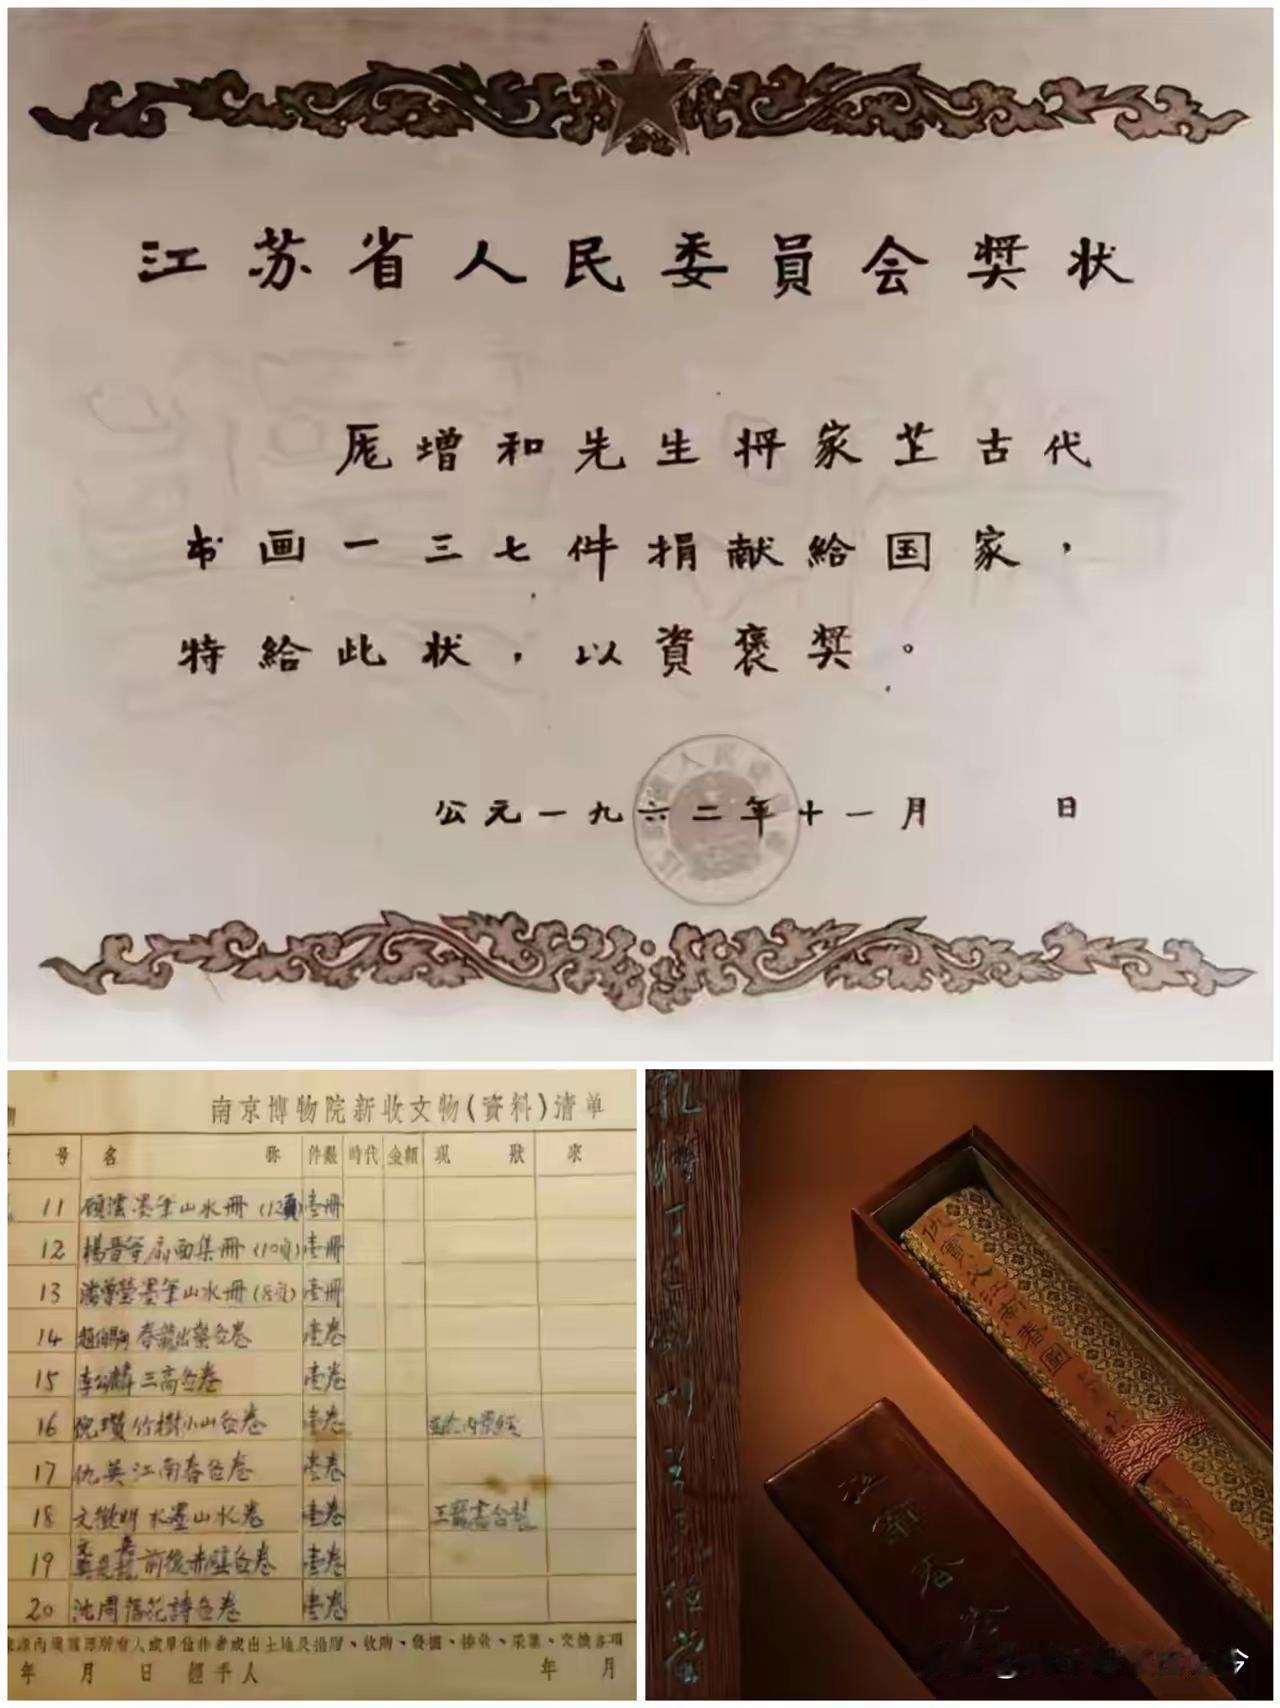 江苏省人民委員会奖状
厐增和先生将家芷古代
书画一三七件捐献給国家，
特給此状，以資褒奖。
公元一九六二年十一月 日
南京博物院新收文物(資料)清单
号 名 称 件数 时代 金額 現 狀 來
11 顧澐墨笔山水冊(12頁) 壹冊
12 楊晋等扇面集冊(10頁) 壹冊
13 潘曾瑩墨笔山水冊(8頁) 壹冊
14 趙伯駒春龍出蟄卷 壹卷
15 李公麟三高卷 壹卷
16 倪瓚竹樹小山卷 壹卷
17 仇英江南春卷 壹卷
18 文徵明水墨山水卷 壹卷
19 前後赤壁卷 壹卷
20 沈周落花詩卷 壹卷
年 月 日 經手人 年 月
仇實父江南春圖
江南春